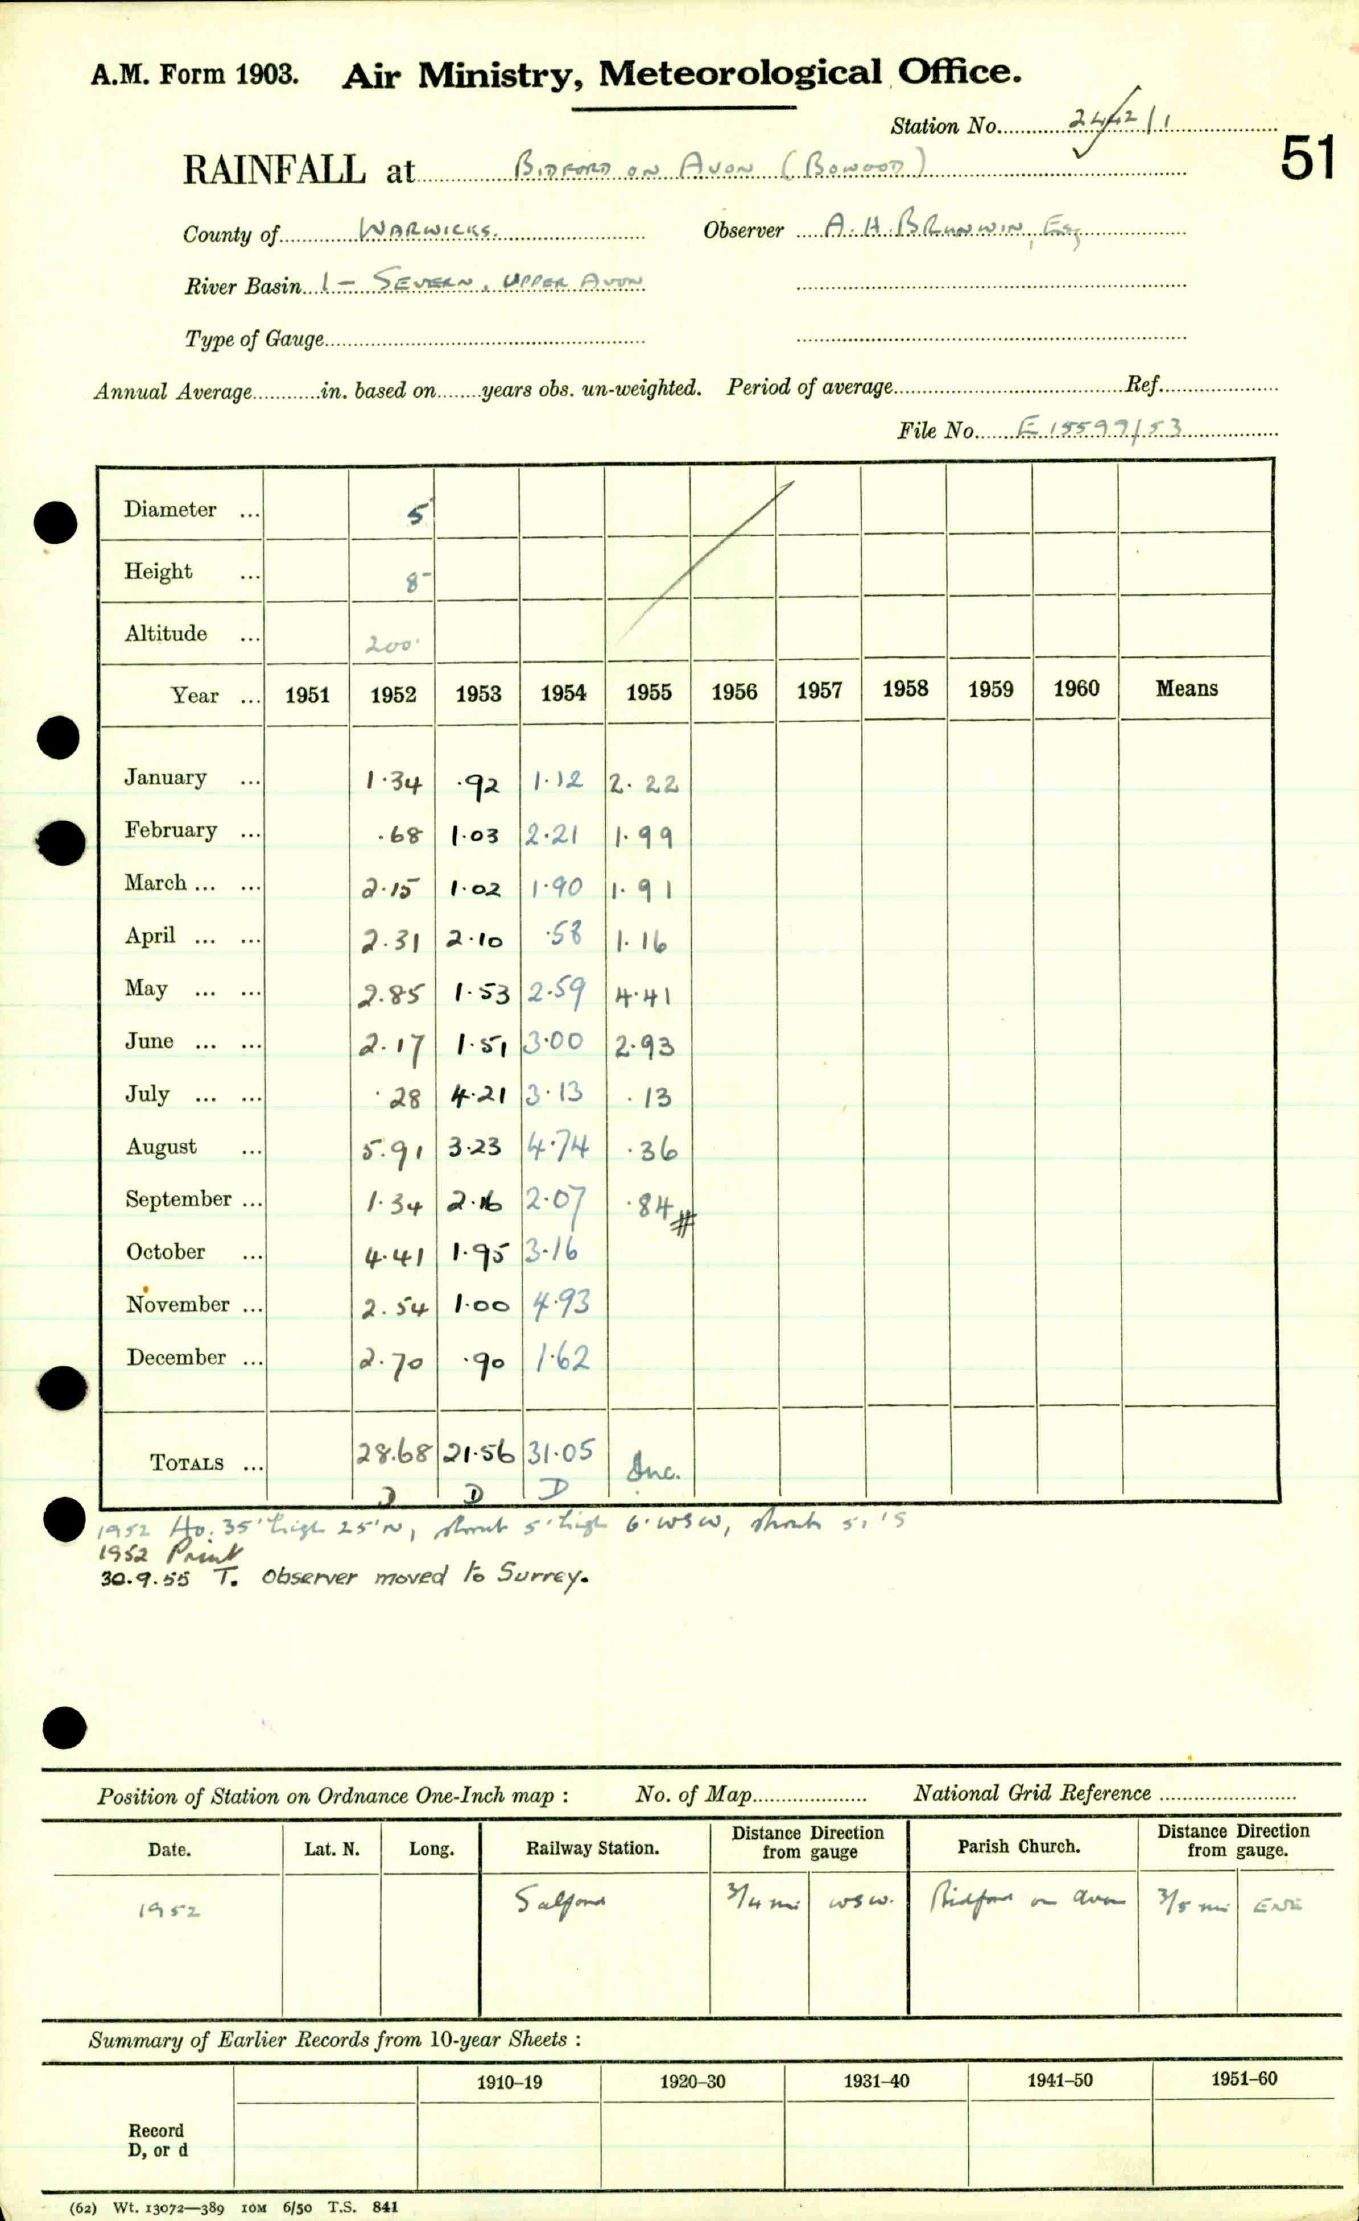 A.M. Form 1903. Air Ministry, Meteorological Office.
Station No. 2442/1
51
RAINFALL at BIDFORD ON AVON (BOWOOD)
County of WARWICKS. Observer A. H. BRUNWIN, Esq
River Basin 1 - SEVERN, UPPER AVON
Type of Gauge
Annual Average in. based on years obs. un-weighted. Period of average Ref.
File No. E 15599/53
Diameter ... 5
Height ... 8
Altitude ... 200
Year ... 1951 1952 1953 1954 1955 1956 1957 1958 1959 1960 Means
January ... 1.34 .92 1.12 2.22
February ... .68 1.03 2.21 1.99
March ... ... 2.15 1.02 1.90 1.91
April ... ... 2.31 2.10 .58 1.16
May ... ... 2.85 1.53 2.59 4.41
June ... ... 2.17 1.51 3.00 2.93
July ... ... .28 4.21 3.13 .13
August ... 5.91 3.23 4.74 .36
September ... 1.34 2.16 2.07 .84 #
October ... 4.41 1.95 3.16
November ... 2.54 1.00 4.93
December ... 2.70 .90 1.62
TOTALS ... 28.68 21.56 31.05 Inc.
D D D
1952 Ho. 35' high 25' N, shrub 5' high 6' WSW, shrub 5, 15
1952 Print
30.9.55 T. Observer moved to Surrey.
Position of Station on Ordnance One-Inch map : No. of Map National Grid Reference
Date. Lat. N. Long. Railway Station. Distance Direction from gauge Parish Church. Distance Direction from gauge.
1952 Salford 3/4 mi WSW. Bidford on Avon 3/5 mi ENE
Summary of Earlier Records from 10-year Sheets :
1910-19 1920-30 1931-40 1941-50 1951-60
Record
D, or d
(62) Wt. 13072—389 10M 6/50 T.S. 841